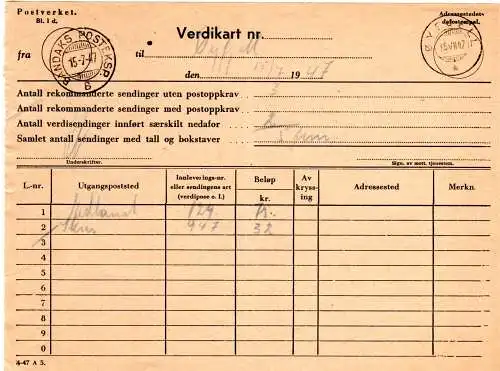 Postverket.
Bl. 1 d.
Adressestedets
datostempel.
SANDAKS POSTEKSP.
15-7-47
B
Verdikart nr.
fra
til
15 VII 47
den 15/7 1947
Antall rekommanderte sendinger uten postoppkrav 3
Antall rekommanderte sendinger med postoppkrav
Antall verdisendinger innført særskilt nedafor 2
Samlet antall sendinger med tall og bokstaver
Underskrifter.
Sign. av mott. tjenestem.
L.-nr. Utgangspoststed Innleverings-nr. eller sendingens art (verdipose o. l.) Beløp kr. Av kryssing Adressested Merkn.
1 129
2 947 32
3
4
5
6
7
8
9
0
4-47 A 5.